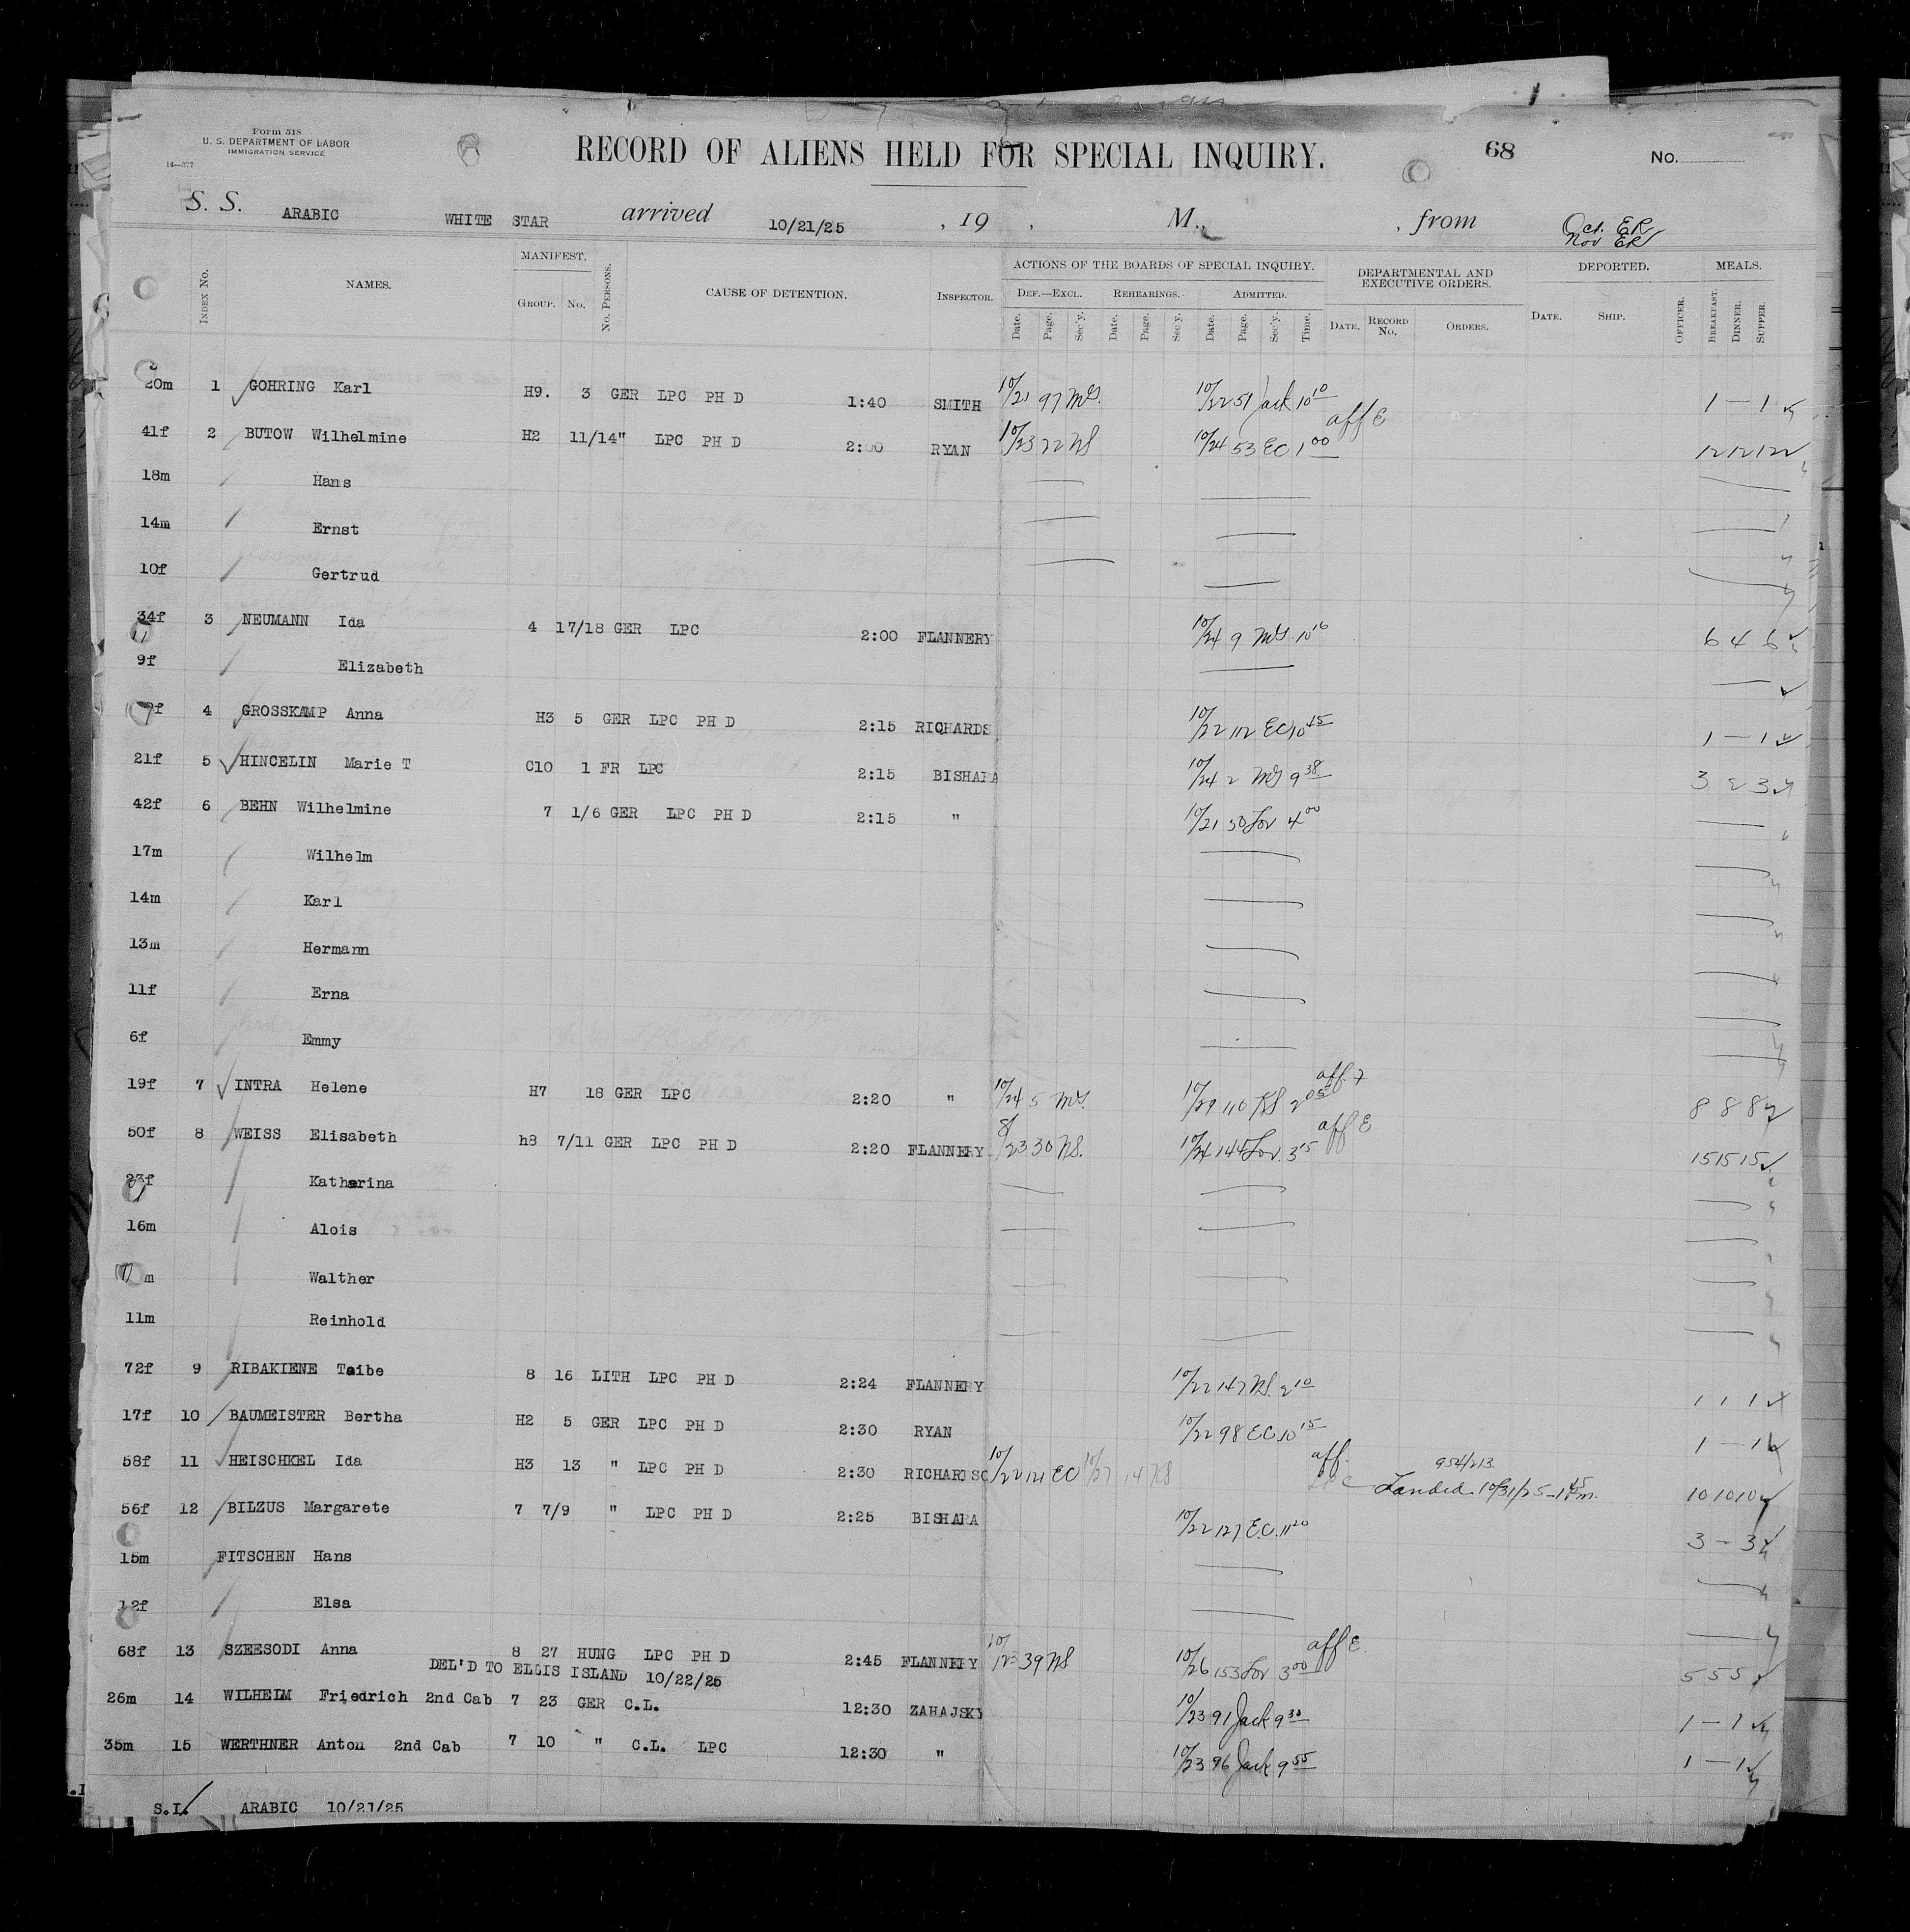 Form 518
U. S. DEPARTMENT OF LABOR
IMMIGRATION SERVICE
14—377
RECORD OF ALIENS HELD FOR SPECIAL INQUIRY.
68
No.
S. S. ARABIC WHITE STAR arrived 10/21/25 , 19 , M., , from Oct. ER
Nov ER
INDEX No. NAMES. MANIFEST. GROUP. No. No. PERSONS. CAUSE OF DETENTION. INSPECTOR. ACTIONS OF THE BOARDS OF SPECIAL INQUIRY. DEF.—EXCL. REHEARINGS. ADMITTED. DEPARTMENTAL AND EXECUTIVE ORDERS. DEPORTED. MEALS.
Date. Page. Sec'y. Date. Page. Sec'y. Date. Page. Sec'y. Time. DATE. RECORD No. ORDERS. DATE. SHIP. OFFICER. BREAKFAST. DINNER. SUPPER.
20m 1 GOHRING Karl H9. 3 GER LPC PH D 1:40 SMITH 10/21 97 10/22 51 Jack 10 10 1 — 1
41f 2 BUTOW Wilhelmine H2 11/14 " LPC PH D 2:00 RYAN 10/23 72 NS 10/24 53 EC 1 00 aff E 12 12 12
18m Hans
14m Ernst
10f Gertrud
34f 3 NEUMANN Ida 4 17/18 GER LPC 2:00 FLANNERY 10/24 9 10 10 6 4 6
9f Elizabeth
f 4 GROSSKAMP Anna H3 5 GER LPC PH D 2:15 RICHARDS 10/22 112 EC 10 45 1 — 1
21f 5 HINCELIN Marie T C10 1 FR LPC 2:15 BISHARA 10/24 2 9 38 3 2 3
42f 6 BEHN Wilhelmine 7 1/6 GER LPC PH D 2:15 " 10/21 50 Lov 4 00
17m Wilhelm
14m Karl
13m Hermann
11f Erna
6f Emmy
19f 7 INTRA Helene H7 18 GER LPC 2:20 " 10/24 5 10/29 110 2 05 aff. 8 8 8
50f 8 WEISS Elisabeth h8 7/11 GER LPC PH D 2:20 FLANNERY /23 30 NS. 10/24 144 Lov. 3 15 aff E 15 15 15
23f Katharina
16m Alois
m Walther
11m Reinhold
72f 9 RIBAKIENE Taibe 8 16 LITH LPC PH D 2:24 FLANNERY 10/22 147 NS. 2 10 1 1 1
17f 10 BAUMEISTER Bertha H2 5 GER LPC PH D 2:30 RYAN 10/22 98 EC 10 15 1 — 1
58f 11 HEISCHKEL Ida H3 13 " LPC PH D 2:30 RICHARDSO 10/22 121 EC 10/27 14 aff. LPC 954/213 Landed 10/31/25 10 10 10
56f 12 BILZUS Margarete 7 7/9 " LPC PH D 2:25 BISHARA 10/22 127 E.C. 11 20 3 — 3
15m FITSCHEN Hans
12f Elsa
68f 13 SZEESODI Anna 8 27 HUNG LPC PH D 2:45 FLANNERY 10/23 39 NS 10/26 153 Lov 3 00 aff E. 5 5 5
DEL'D TO ELLIS ISLAND 10/22/25
26m 14 WILHELM Friedrich 2nd Cab 7 23 GER C.L. 12:30 ZAHAJSKY 10/23 91 Jack 9 30 1 — 1
35m 15 WERTHNER Anton 2nd Cab 7 10 " C.L. LPC 12:30 " 10/23 96 Jack 9 55 1 — 1
S.I. ARABIC 10/21/25